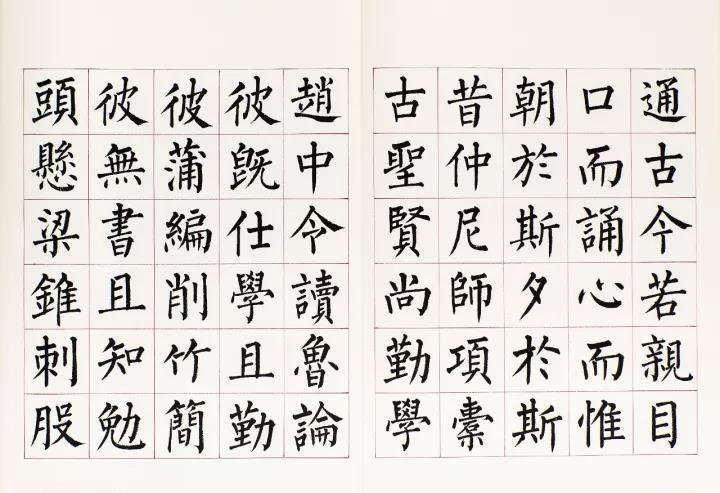 通古今若親目
口而誦心而惟
朝於斯夕於斯
昔仲尼師項橐
古聖賢尚勤學
趙中令讀魯論
彼既仕學且勤
彼蒲編削竹簡
彼無書且知勉
頭懸梁錐刺股